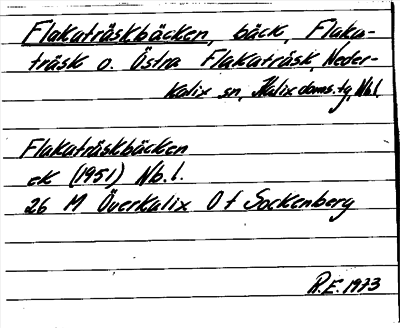 Flakaträskbäcken, bäck, Flaka-
träsk o. Östra Flakaträsk, Neder-
kalix sn, Kalix doms.tg, Nb.l.
Flakaträskbäcken
ek (1951) Nb.l.
26 M Överkalix Of Sockenberg
R.E. 1973